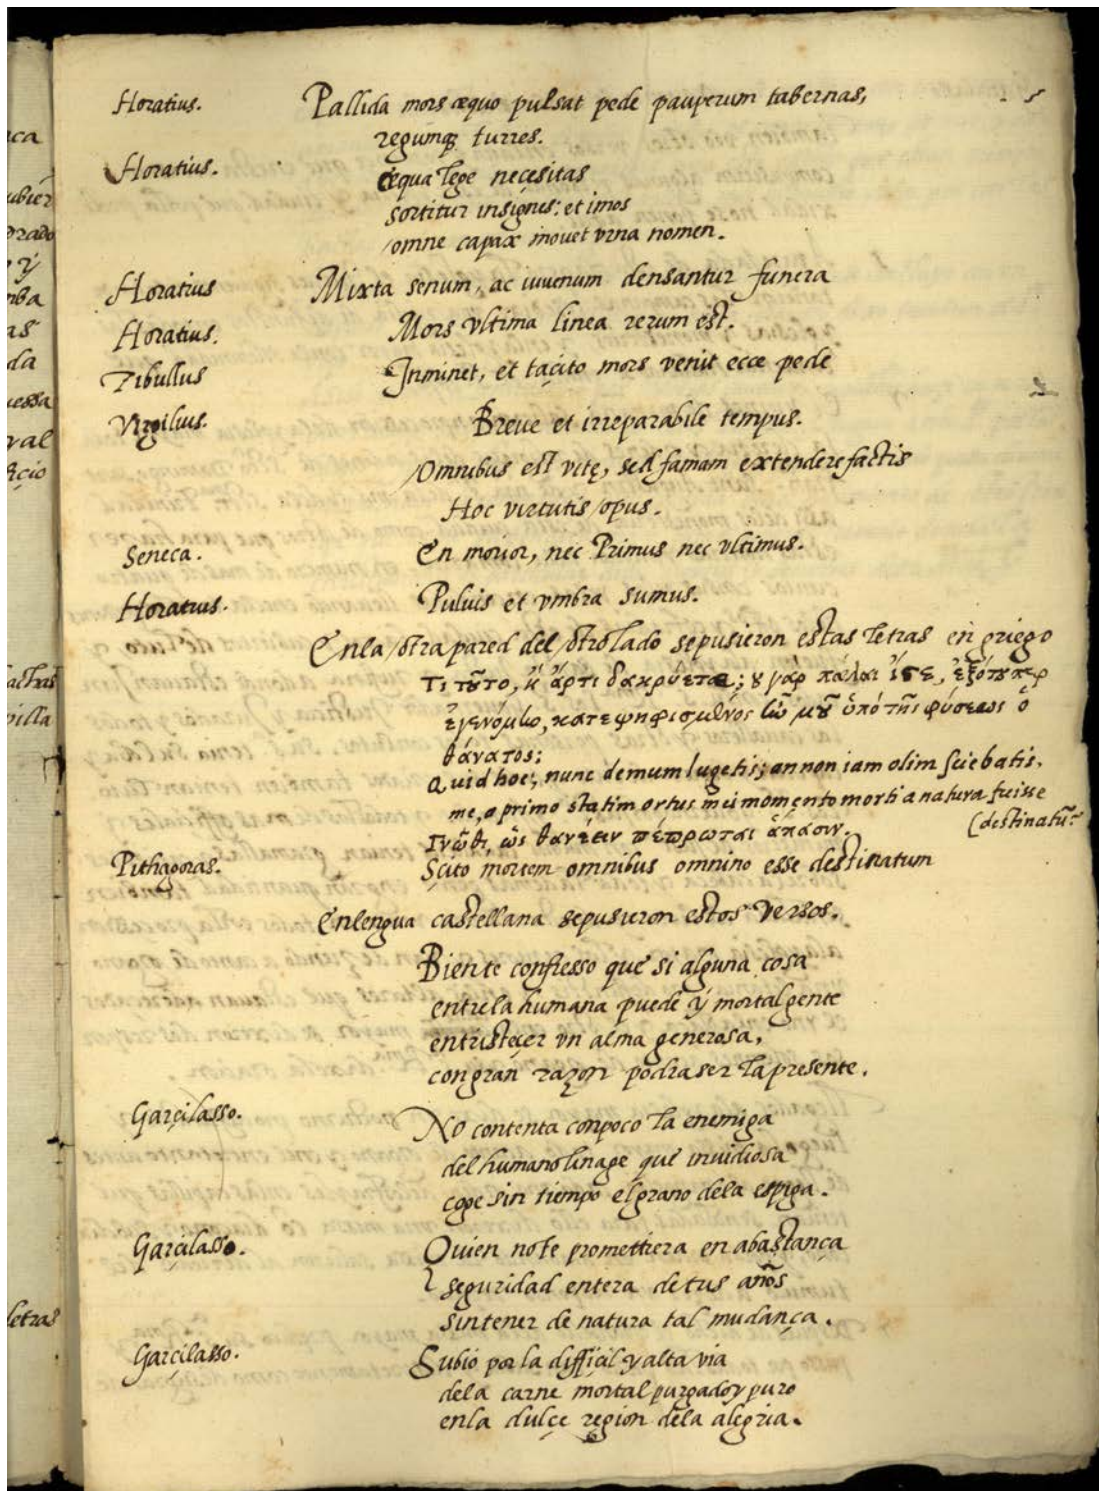 Horatius. Pallida mors æquo pulsat pede pauperum tabernas,
regumq; turres.
Horatius. æqua lege neçesitas
sortitur insignes: et imos
omne capax mouet vrna nomen.
Horatius Mixta senum, ac iuuenum densantur funera
Horatius. Mors vltima linea rerum est.
Tibullus Inminet, et taçito mors venit ecce pede
Virgilius. Breue et irreparabile tempus.
Omnibus est vitę, sed famam extendere factis
Hoc virtutis opus.
Seneca. En morior, nec Primus nec vltimus.
Horatius. Puluis et vmbra sumus.
Enla otra pared del otro lado sepusieron estas letras en griego
Τι τοῦτο, ἢ ἄρτι δακρύετε; ȣ γὰρ πάλαι ἴστε, ἐξότουπερ
ἐγενόμην, κατεψηφισμένος ἦν μοῦ ὑπό τῆς φύσεως ὁ
θάνατος;
Quid hoc; nunc demum lugetis; an non iam olim sciebatis,
me, a primo statim ortus mei momento morti a natura fuisse
(destinatũ?
Γνῶθι, ὡς θανέειν πέπρωται ἅπασιν.
Pithagoras. Sçito mortem omnibus omnino esse destinatum
Enlengua castellana sepusieron estos versos.
Biente confiesso que si alguna cosa
entrela humana puede ÿ mortal gente
entristeçer vn alma generosa,
congran razon podra ser la presente.
Garçilasso. No contenta conpoco la enemiga
del humano linage que invidiosa
coge sin tiempo el grano dela espiga.
Garçilasso. Quien note promettiera en abastança
seguridad entera de tus años
sintener de natura tal mudança.
Garçilasso. Subio por la diffiçil y alta via
dela carne mortal purgado y puro
enla dulçe region dela alegria.